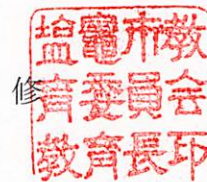 塩竈市教
育委員会
教育長印
修